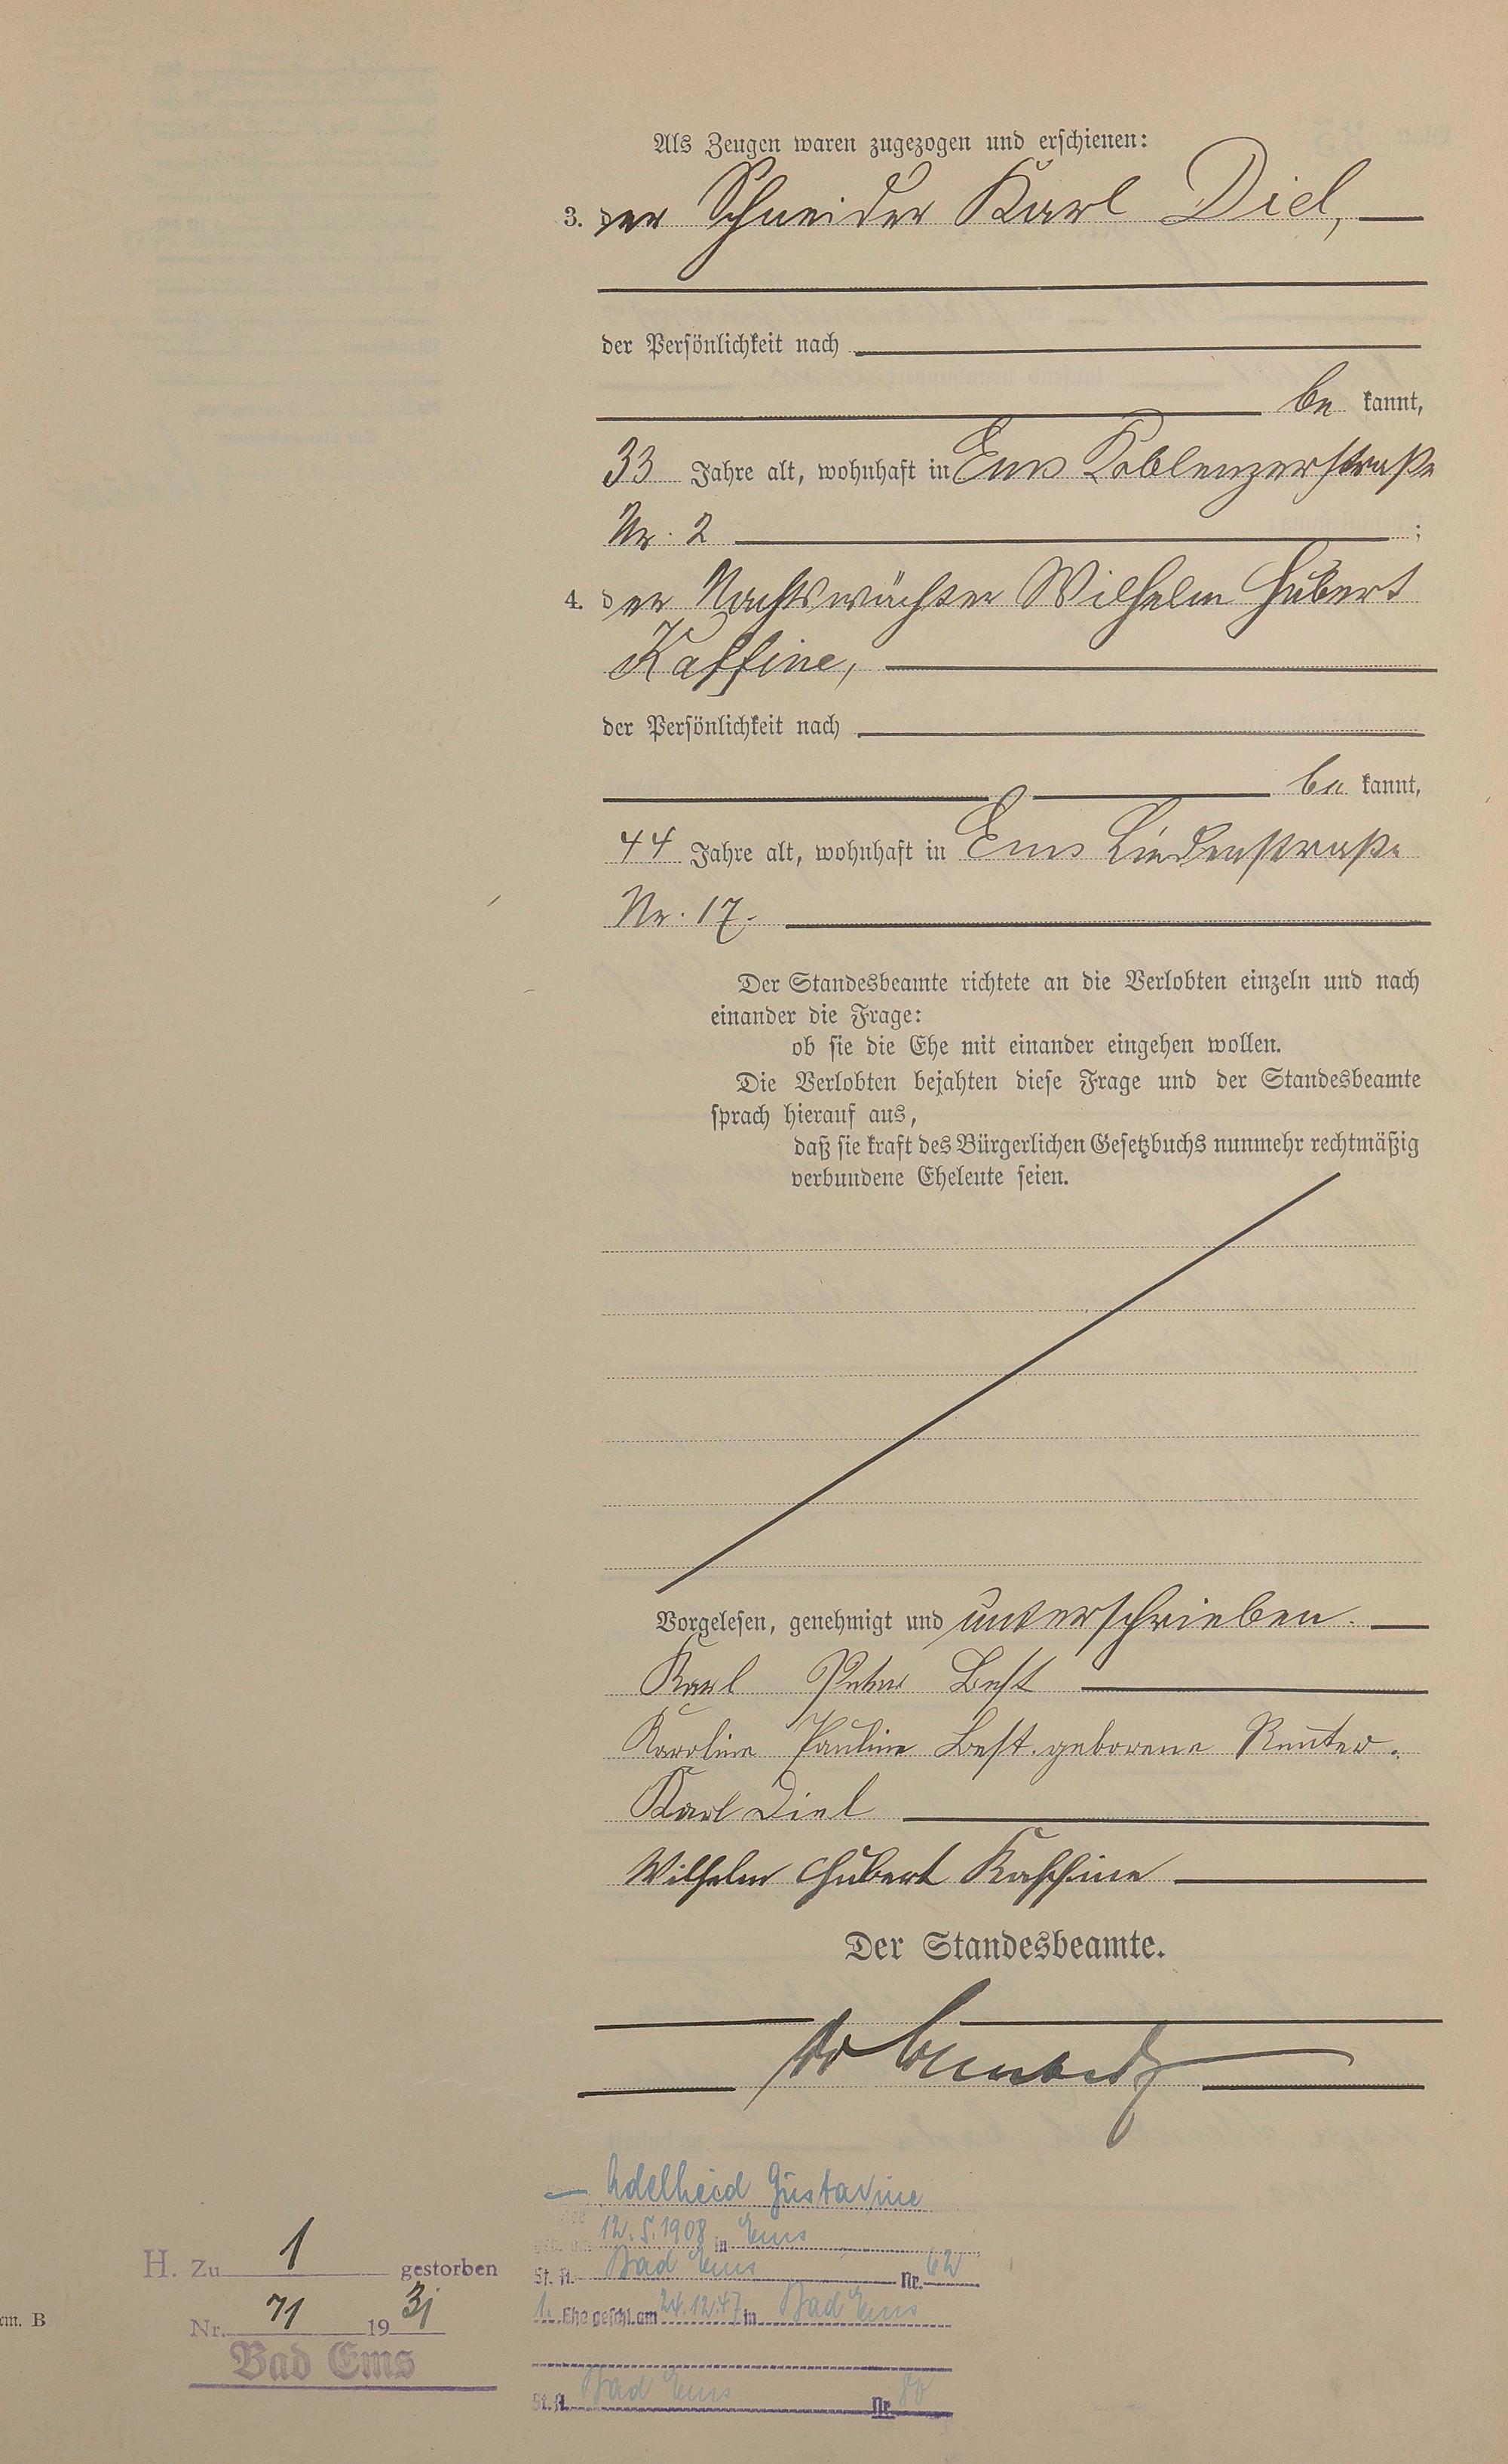 Als Zeugen waren zugezogen und erschienen:
3. der Schneider Karl Diel,
der Persönlichkeit nach
be kannt,
33 Jahre alt, wohnhaft in Ems Koblenzerstraße
Nr. 2 ;
4. der Nachtswächter Wilhelm Hubert
Kaffine,
der Persönlichkeit nach
be kannt,
44 Jahre alt, wohnhaft in Ems Lindenstraße
Nr. 17.
Der Standesbeamte richtete an die Verlobten einzeln und nach
einander die Frage:
ob sie die Ehe mit einander eingehen wollen.
Die Verlobten bejahten diese Frage und der Standesbeamte
sprach hierauf aus,
daß sie kraft des Bürgerlichen Gesetzbuchs nunmehr rechtmäßig
verbundene Eheleute seien.
Vorgelesen, genehmigt und unterschrieben.
Karl Peter Best
Karoline Pauline Best geborene Reuter.
Karl Diel
Wilhelm Hubert Kaffine
Der Standesbeamte.
Adelheid Gustavine
12.5.1908 in Ems
St. A. Bad Ems Nr. 62
1. Ehe geschl. am 24.12.47 in Bad Ems
St. A. Bad Ems Nr.
H. Zu 1 gestorben
Nr. 71 19 31
Bad Ems
rm. B